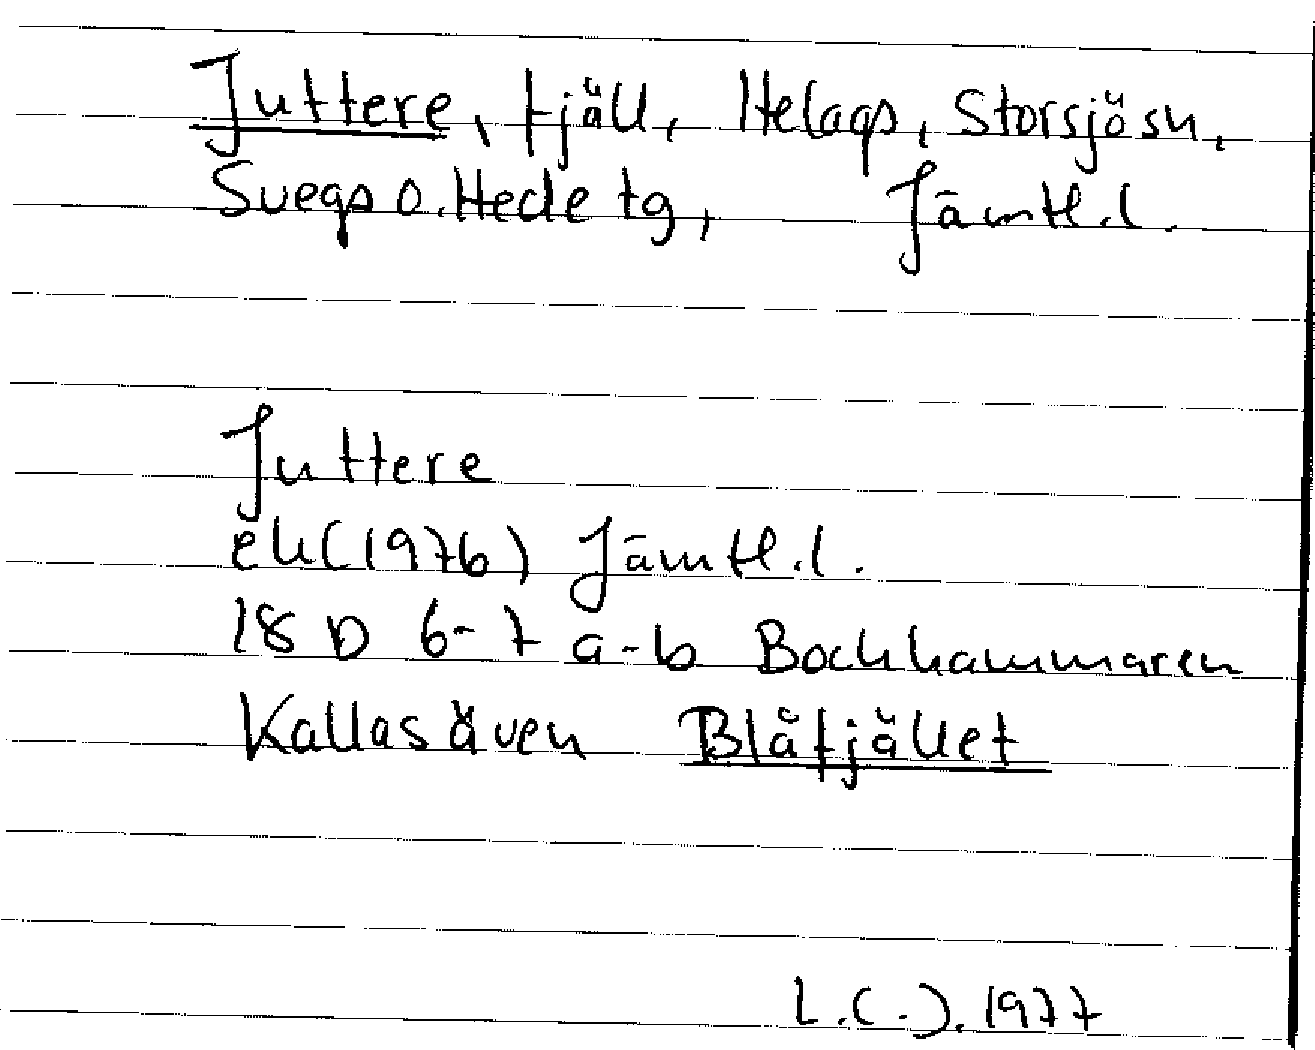 Juttere, fjäll, Helags, Storsjö sn,
Svegs o. Hede tg, Jämtl.l.
Juttere
ek (1976) Jämtl.l.
18 D 6-7 a-b Bockhammaren
Kallas även Blåfjället
L.C.J. 1977